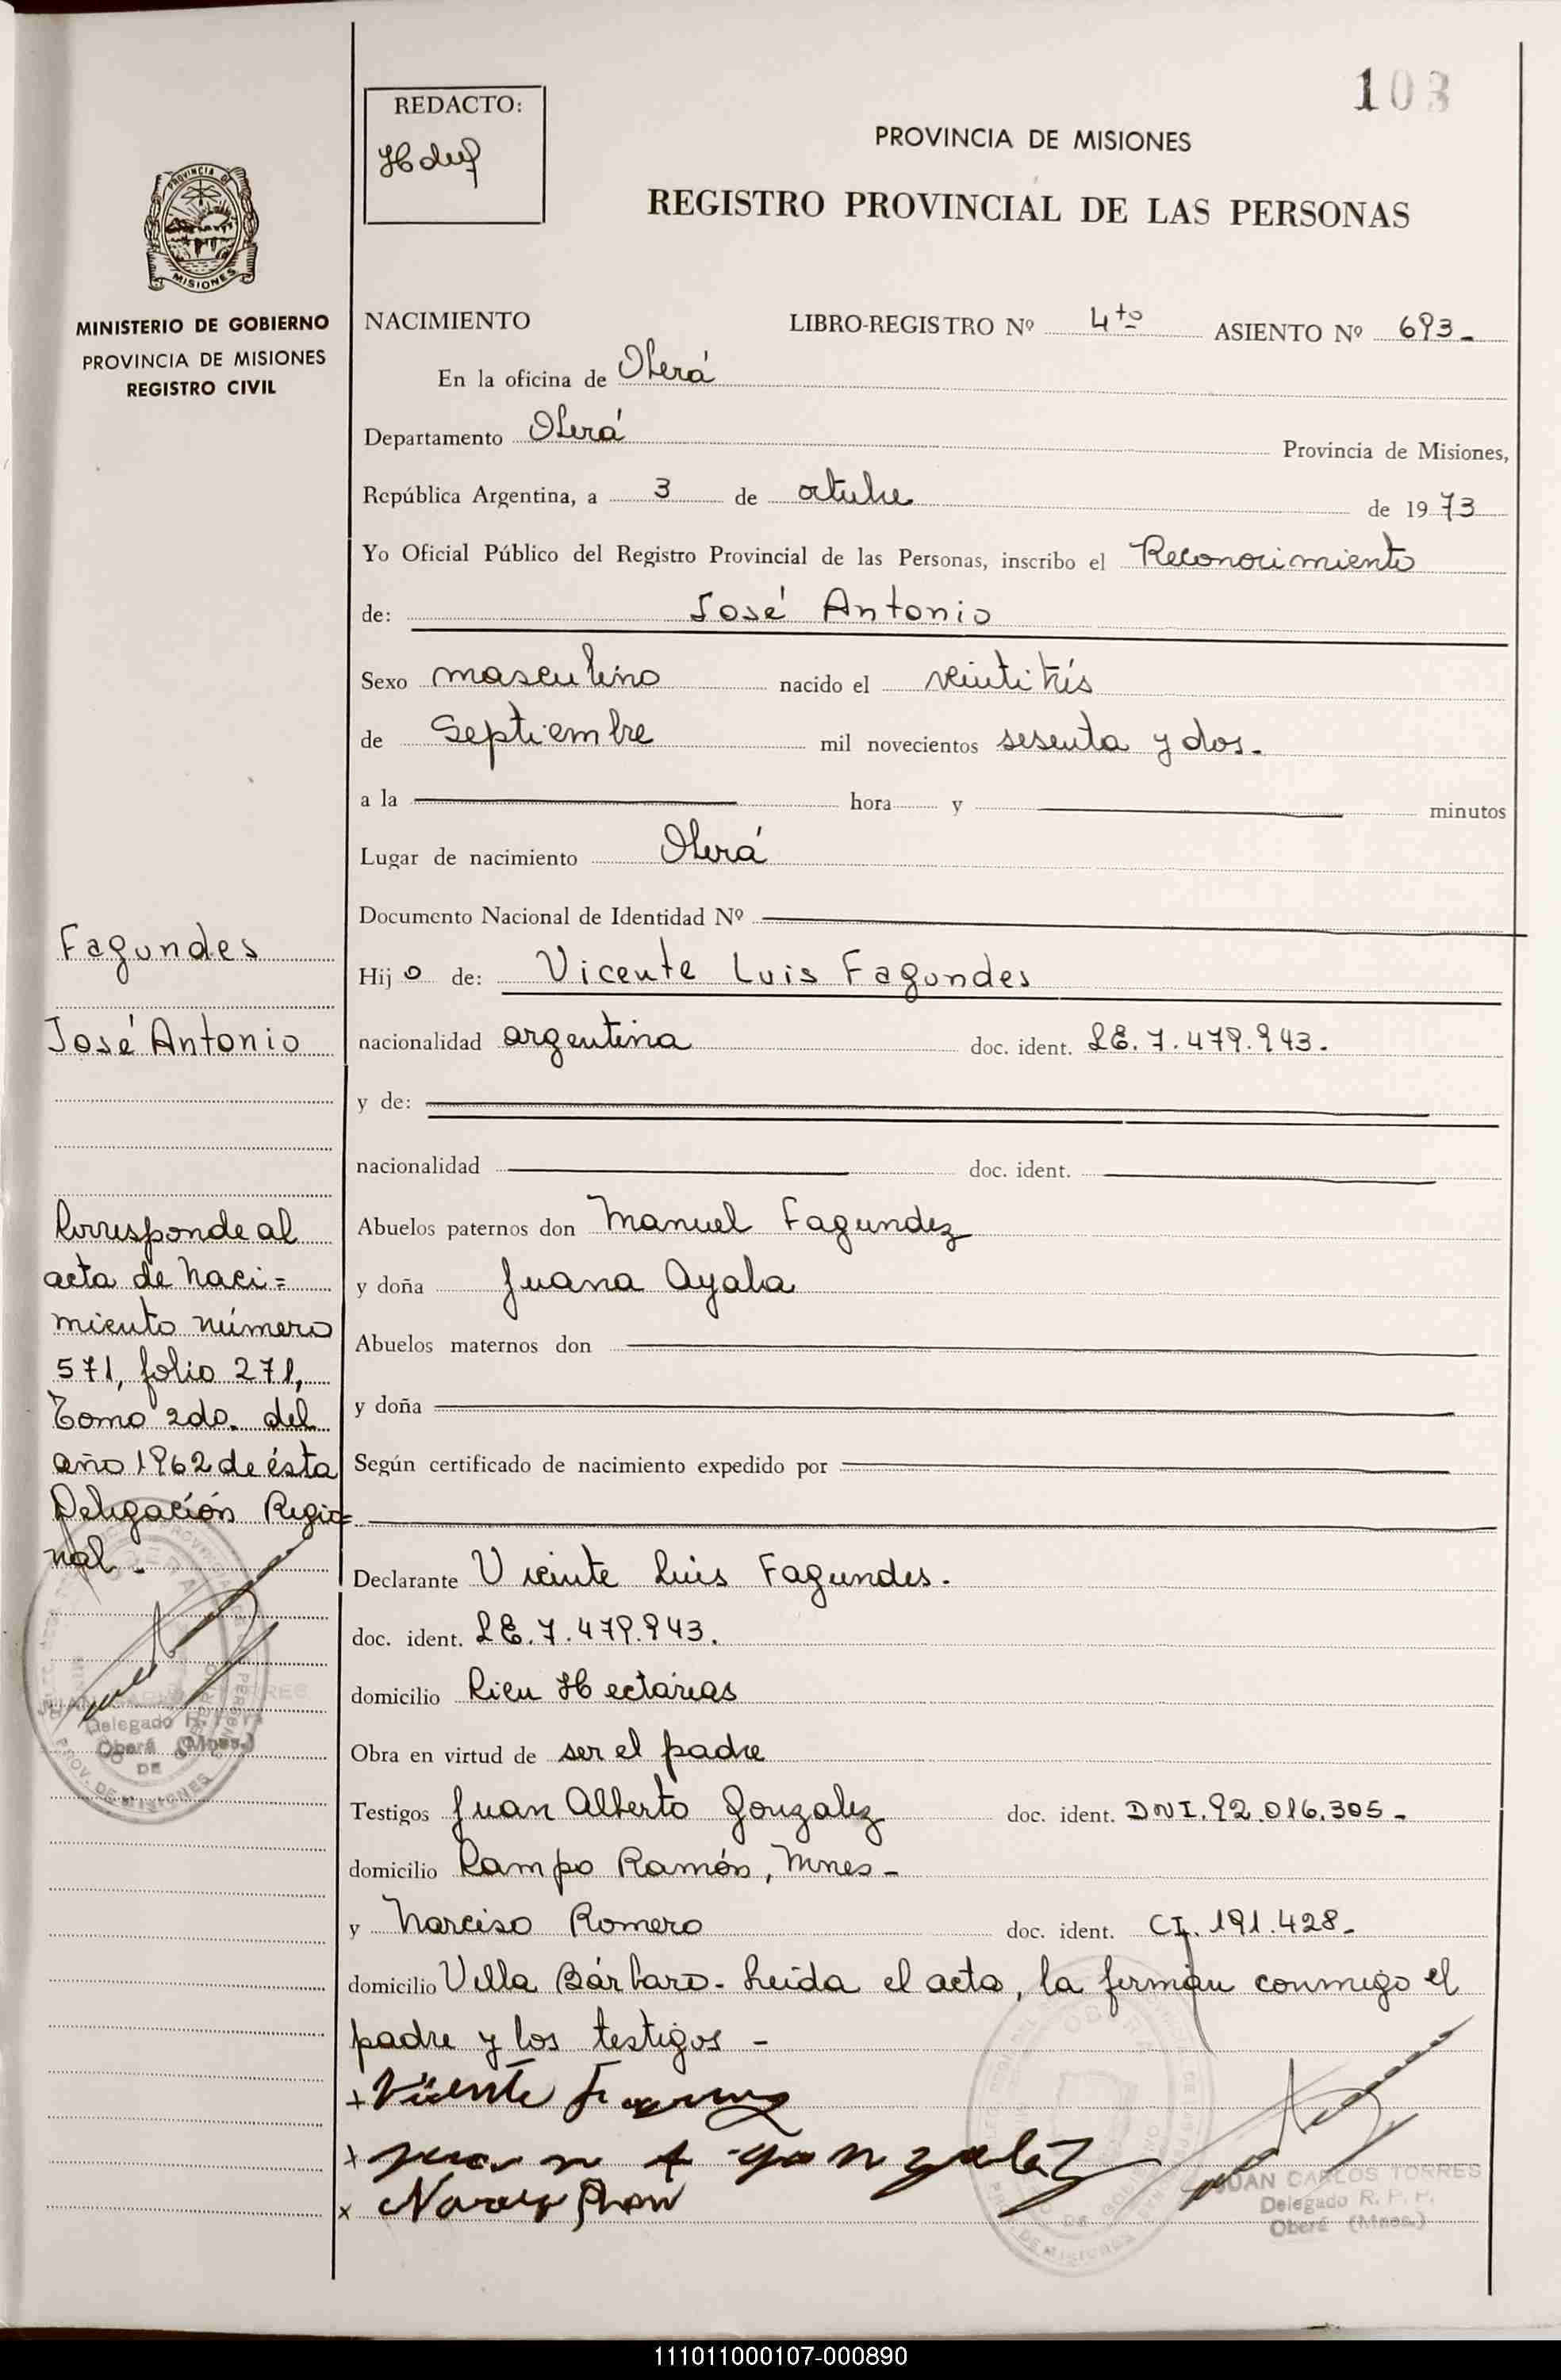 103
REDACTO:
PROVINCIA DE MISIONES
REGISTRO PROVINCIAL DE LAS PERSONAS
PROVINCIA DE
MISIONES
MINISTERIO DE GOBIERNO
PROVINCIA DE MISIONES
REGISTRO CIVIL
NACIMIENTO LIBRO-REGISTRO Nº 4to ASIENTO Nº 693-
En la oficina de Oberá
Departamento Oberá Provincia de Misiones,
República Argentina, a 3 de octubre de 1973
Yo Oficial Público del Registro Provincial de las Personas, inscribo el Reconocimiento
de: José Antonio
Sexo masculino nacido el veintitrés
de Septiembre mil novecientos sesenta y dos.
a la hora y minutos
Lugar de nacimiento Oberá
Documento Nacional de Identidad Nº
Hijo de: Vicente Luis Fagundes
nacionalidad argentina doc. ident. LE. 7.479.943.
y de:
nacionalidad doc. ident.
Abuelos paternos don Manuel Fagundez
y doña Juana Ayala
Abuelos maternos don
y doña
Según certificado de nacimiento expedido por
Declarante Vicente Luis Fagundes.
doc. ident. LE. 7.479.943.
domicilio Cien Hectáreas
Obra en virtud de ser el padre
Testigos Juan Alberto Gonzalez doc. ident. DNI. 92.016.305-
domicilio Campo Ramón, Mnes-
y Narciso Romero doc. ident. CI. 191.428-
domicilio Villa Bárbaro- Leida el acta, la firman conmigo el
padre y los testigos -
x Vicente
x Juan A Gonzalez
x
JUAN CARLOS TORRES
Delegado R. P. P.
Oberá (Mnes.)
Fagundes
José Antonio
Corresponde al
acta de naci=
miento número
571, folio 271,
Tomo 2do. del
año 1962 de ésta
Delegación Regio=
nal.
Delegado R. P. P.
Oberá (Mnes.)
PROV. DE MISIONES
111011000107-000890